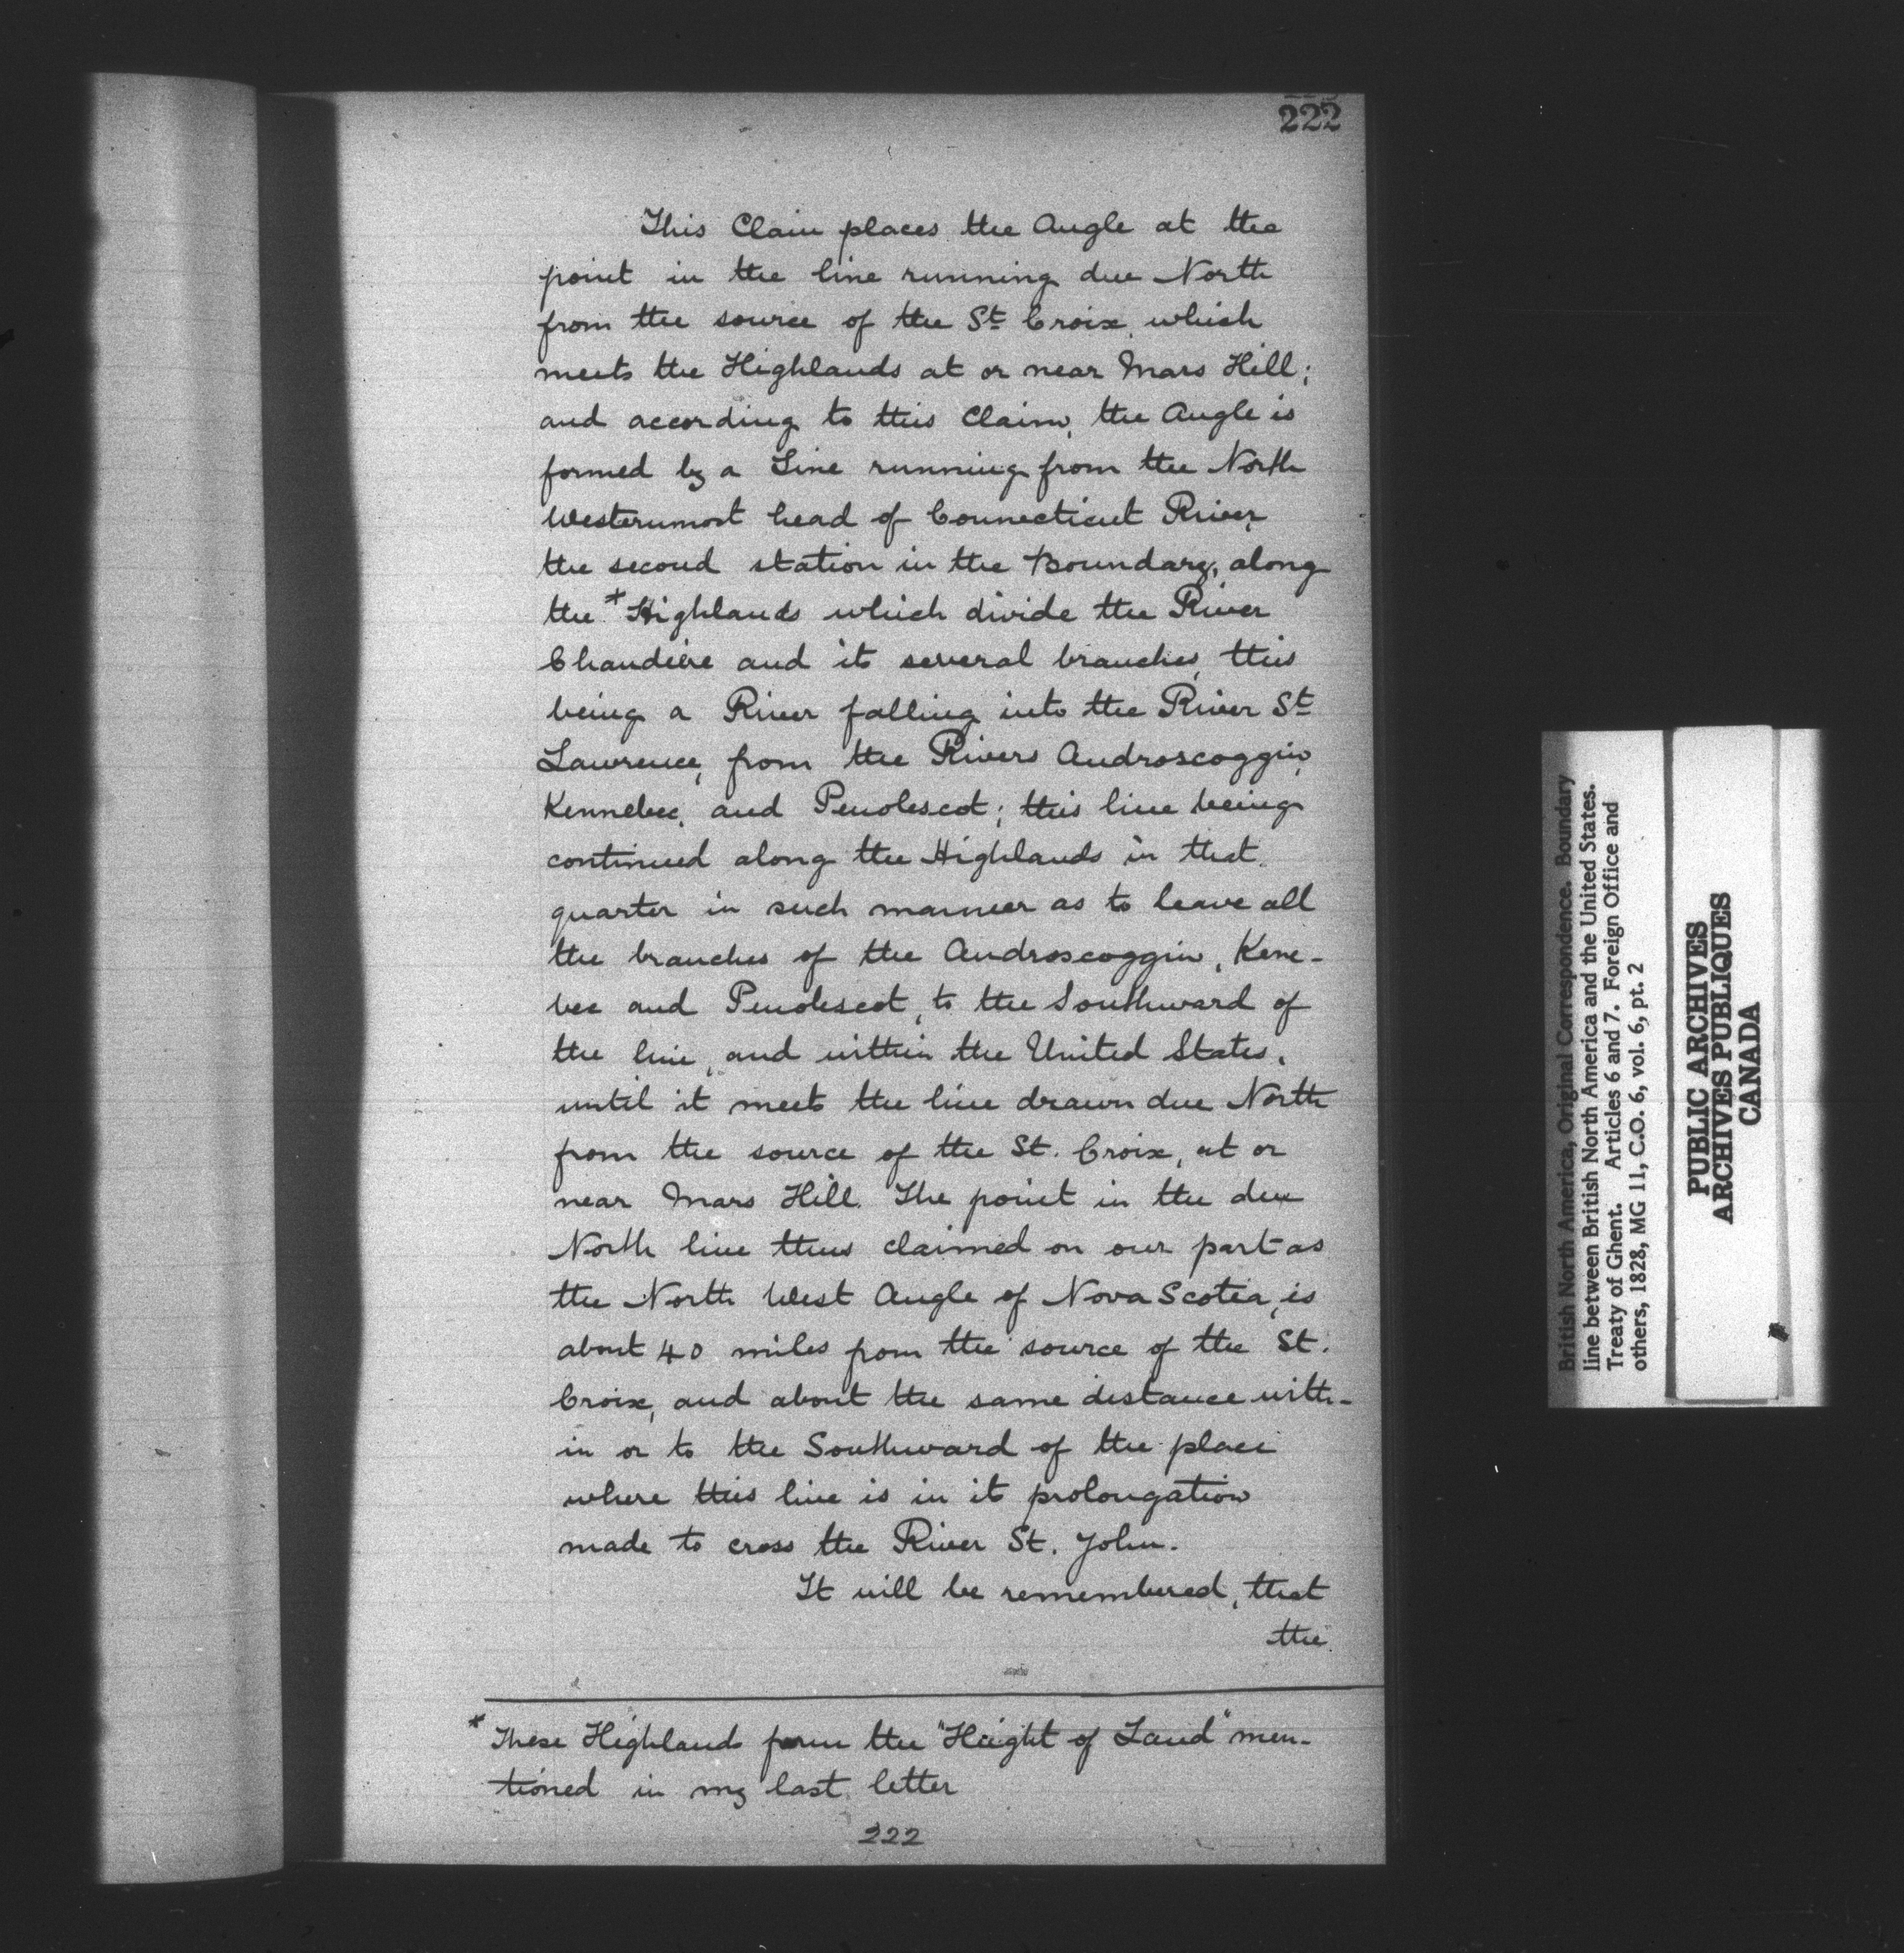 222
This Claim places the Angle at the
point in the line running due North
from the source of the St Croix, which
meets the Highlands at or near Mars Hill;
and according to this Claim, the Angle is
formed by a Line running from the North
Westernmost head of Connecticut River,
the second station in the Boundary, along
the * Highlands which divide the River
Chaudière and it several branches, this
being a River falling into the River St
Lawrence, from the Rivers Androscoggin,
Kennebec, and Penobscot; this line being
continued along the Highlands in that
quarter in such manner as to leave all
the branches of the Androscoggin, Kene-
bec and Penobscot, to the Southward of
the line, and within the United States,
until it meets the line drawn due North
from the source of the St. Croix, at or
near Mars Hill. The point in the due
North line thus claimed on our part as
the North West Angle of Nova Scotia, is
about 40 miles from the source of the St.
Croix, and about the same distance with-
in or to the Southward of the place
where this line is in it prolongation
made to cross the River St. John.
It will be remembered, that
the
* These Highlands form the "Height of Land" men-
tioned in my last letter
222
British North America, Original Correspondence. Boundary
line between British North America and the United States.
Treaty of Ghent. Articles 6 and 7. Foreign Office and
others, 1828, MG 11, C.O. 6, vol. 6, pt. 2
PUBLIC ARCHIVES
ARCHIVES PUBLIQUES
CANADA